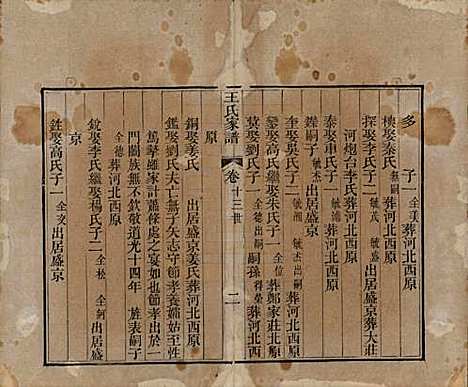 多 子一全美葬河北西原
模娶秦氏無嗣葬河北西原
探娶李氏子二敏茂敏業出居盛京葬大莊
河炮台李氏葬河北西原
泰娶車氏子一敏浦葬河北西原
鏵嗣子敏杰出居盛京
奎娶吳氏子二敏湘敏杰出嗣葬河北西原
鑿娶高氏繼娶朱氏子一全位葬鄭家莊北河
蓂娶劉氏子一全德出嗣嗣孫得榮葬河北西
王氏家譜
卷十三世
二
原
銅娶姜氏 出居盛京姜氏葬河北西原
鑑娶劉氏夫亡無子矢志守節孝養孀姑至性
篤摯雖家計蕭條處之宴如也守節孝於一
門閤族無不欽敬道光十四年 旌表嗣子
全德葬河北西原
銳娶李氏繼娶楊氏子二全松全鈳出居盛
京
銓娶高氏子一全亥出居盛京